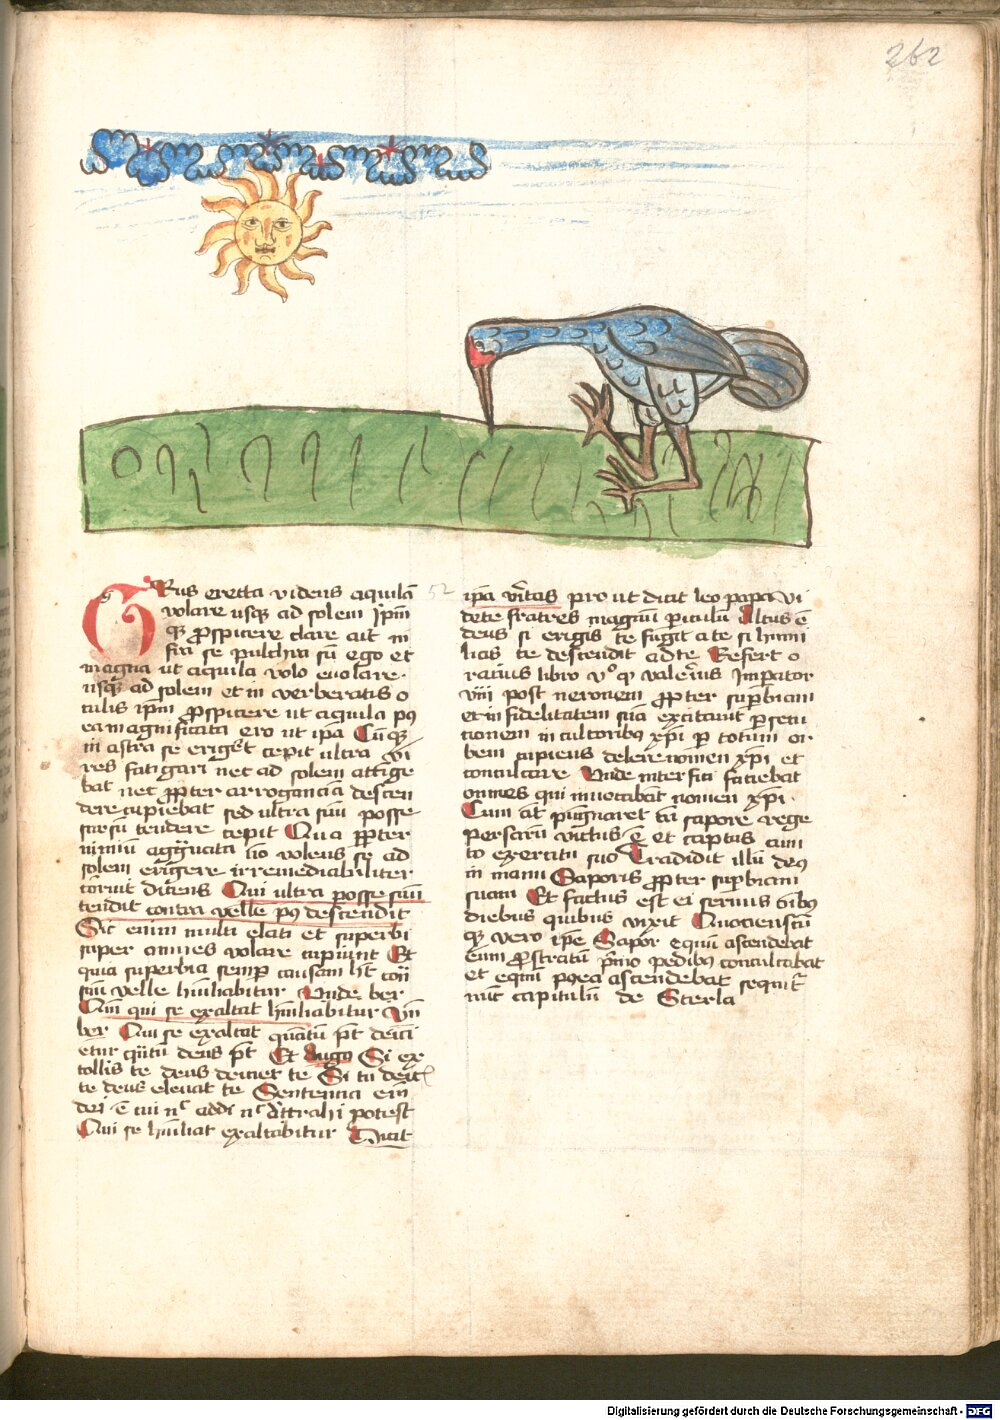 262
GRus erecta videns aquilā
volare usqꝫ ad solem Ipm̄
qꝫ ꝓspicere clare ait in
fra se pulchra sū ego et
magna ut aquila volo evolare
usqꝫ ad solem et in verberatis o
culis ipm̄ ꝓspicere ut aquila pꝰ
ea magnificata ero ut ipa Cūqꝫ
in astra se erigͤt cepit ultra vi
res fatigari nec ad solem attīge
bat nec ꝓpter arrogancia descen
dere cupiebat sed ultra suū posse
sursū tendere cepit Qua ꝓpter
nimiū aggͣvata nō volens se ad
solem erigere irremediabiliter
corruit dicens Qui ultra posse suū
tendit contra velle pꝰ descendit
Sic enim multi elati et superbi
super omnes volare cupiunt Et
quia superbia semꝑ causam hīt cō
suū velle humiliabitur Unde ber
Om̄ qui se exaltat hmīliabitur Un̄
ber Qui se exaltat quātū pt̄ deici
etur quātū deus pt̄ Et Augꝰ Si ex
tollis te deus deiciet te Si tu deic
te deus elevat te Sentencia em̄
dei ē cui nͨ addi nͨ dttrahi potest
Qui se hmīliat exaltabitur Dicit
52
ipa vͥtas prout dicit leo papa Vi
dete fratres magnū ꝑiculū Altus ē
deus si erigis te fugit a te si humi
lias te descendit ad te Refert o
rasius libro vͦ qꝫ valerius Imꝑator
viii post neronem ꝓpter suꝑbiam
et infidelitatem suā excitavit ꝑsecu
tionem in cultoribus xpī ꝑ totum or
bem cupiens delere nomen xpī et
conculcare Unde interfici faciebat
omnes qui invocabāt nomen xpī
Cum aūt pugnaret cū sapore rege
persarū victus ē et captus cum
to exercitu suo Tradidit illū deꝰ
in manu Saporis ꝓpter suꝑbiam
suam Et factus est ei servus oībꝰ
diebus quibus vixit Quocienscū
qꝫ vero ipē Sapor equū ascenderat
eum ꝓstratū pͥmo pedibꝰ conculcabat
et equū postea ascendebat sequitͬ
nūc capitulū de Sterla
Digitalisierung gefördert durch die Deutsche Forschungsgemeinschaft - DFG